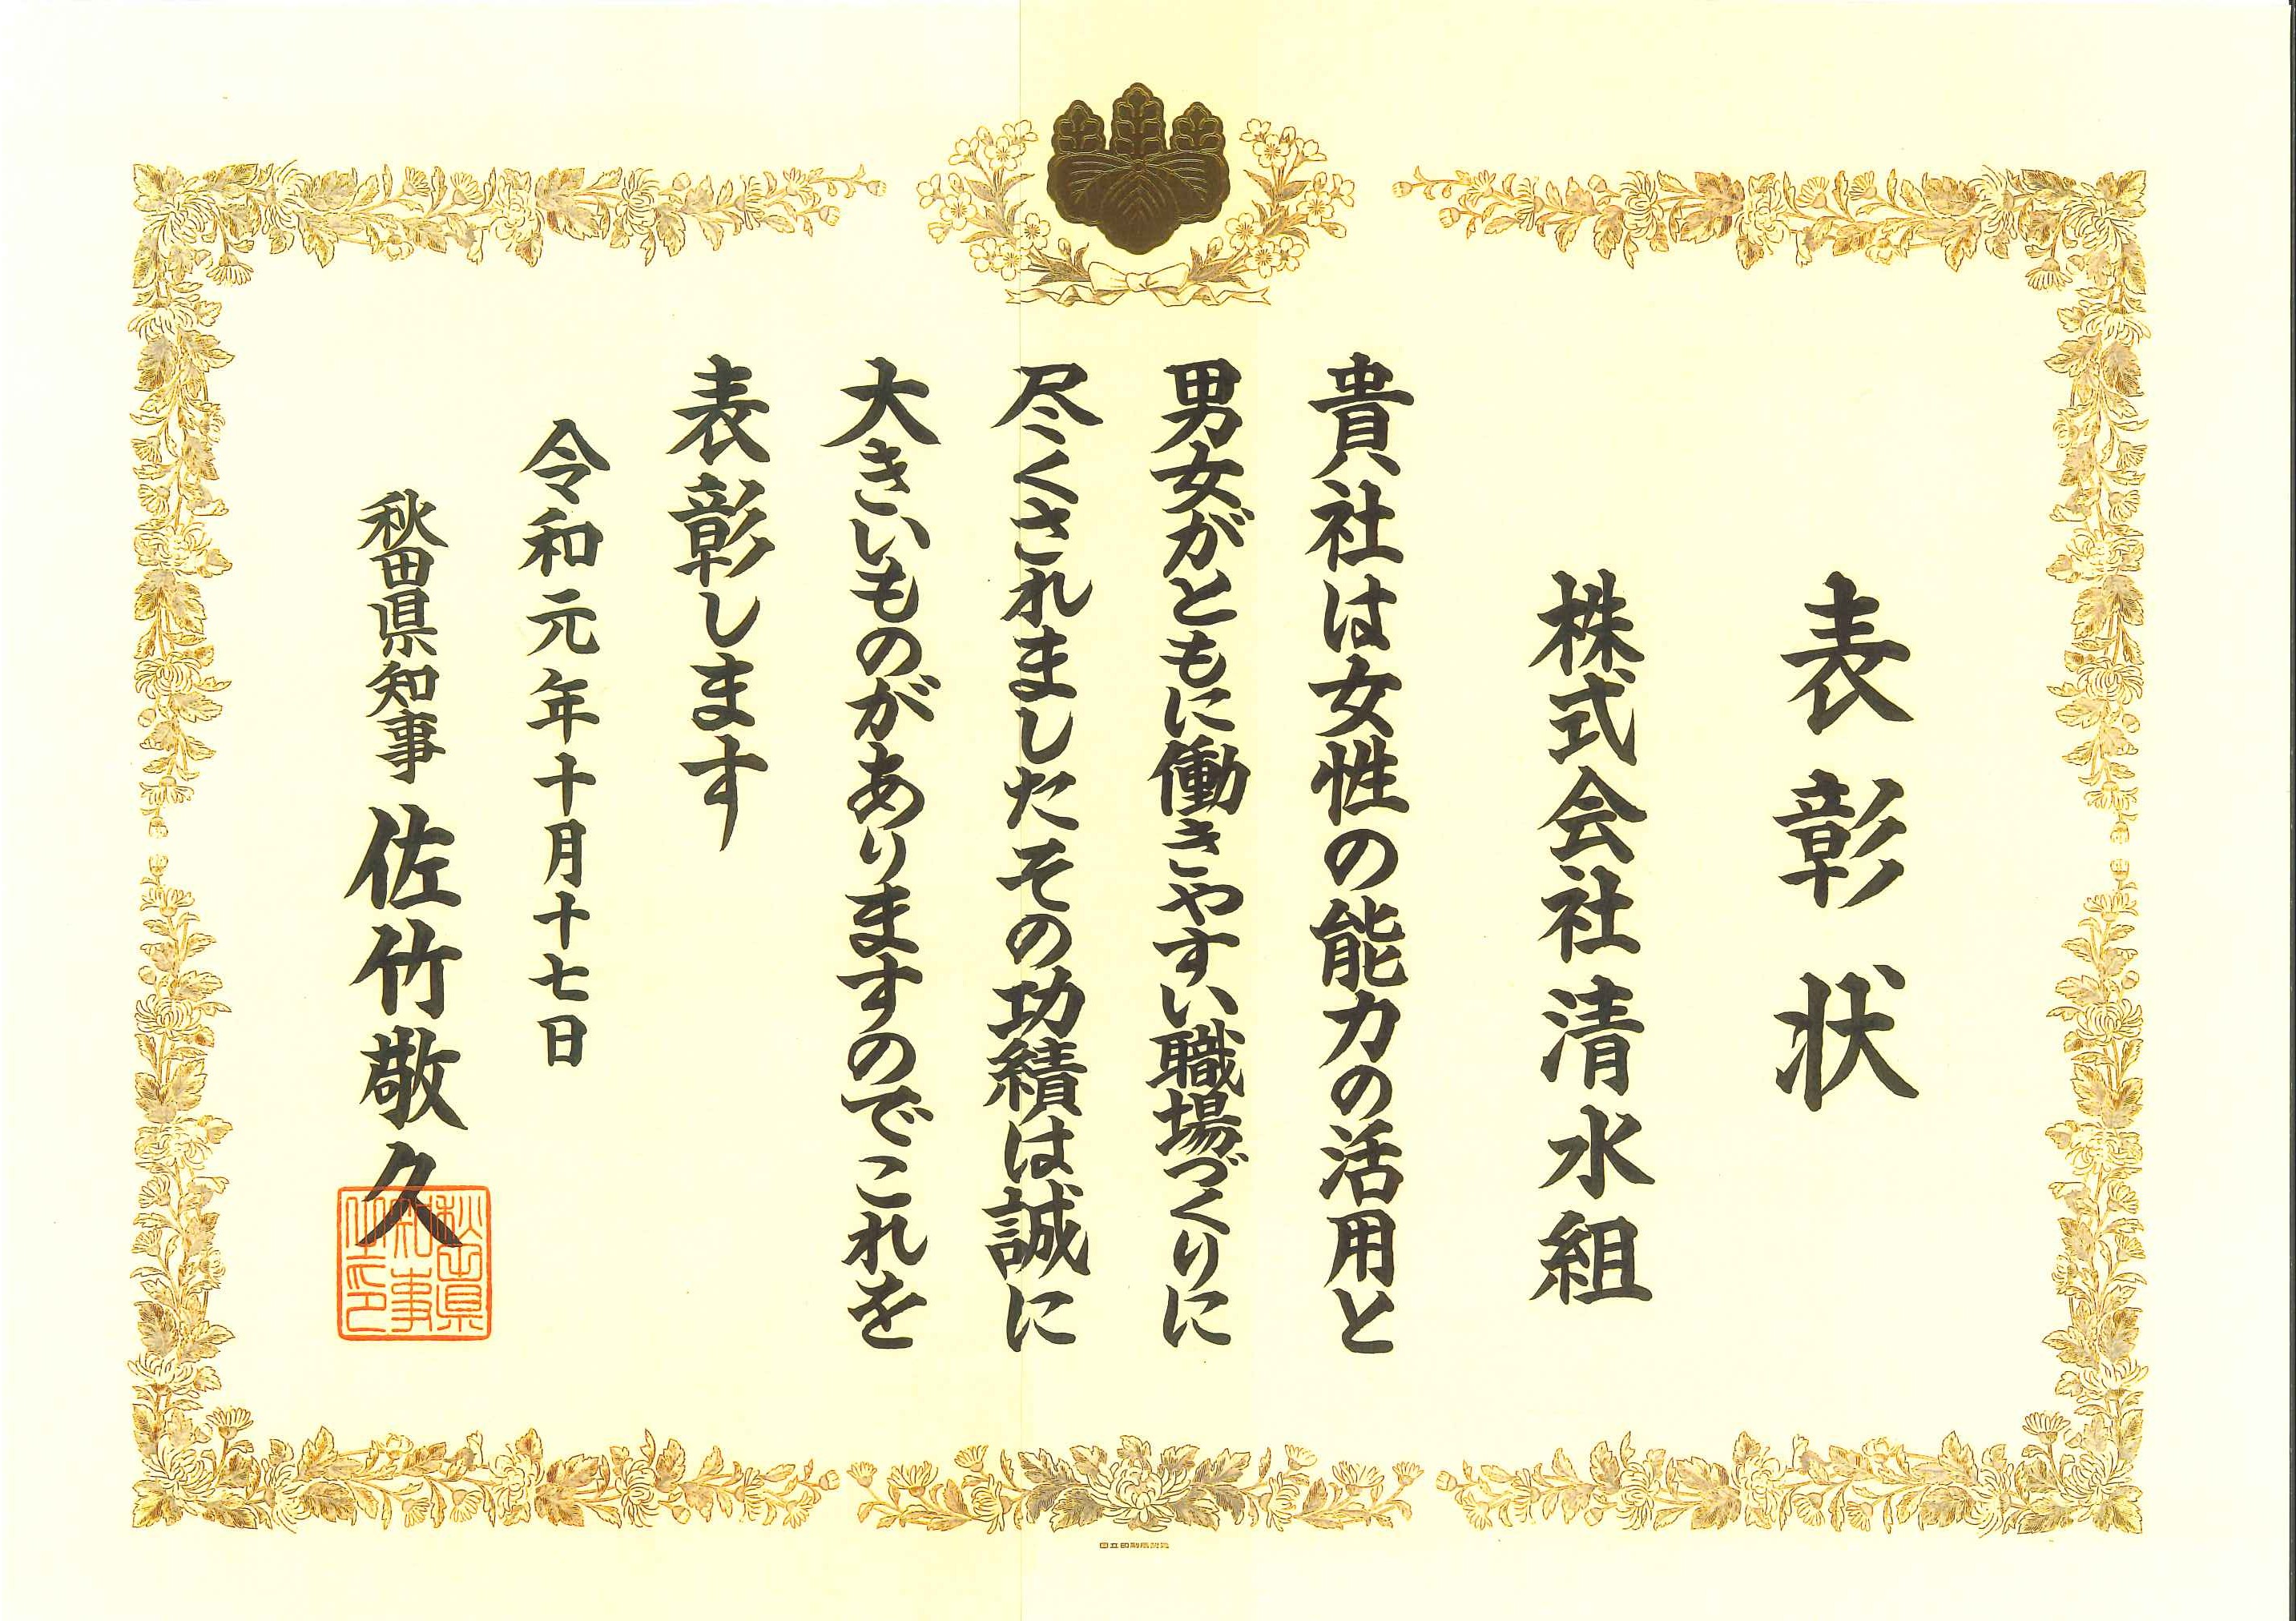 表彰状
株式会社清水組
貴社は女性の能力の活用と
男女がともに働きやすい職場づくりに
尽くされましたその功績は誠に
大きいものがありますのでこれを
表彰します
令和元年十月十七日
秋田県知事 佐竹敬久
秋田県
知事
之印
国立印刷局製造